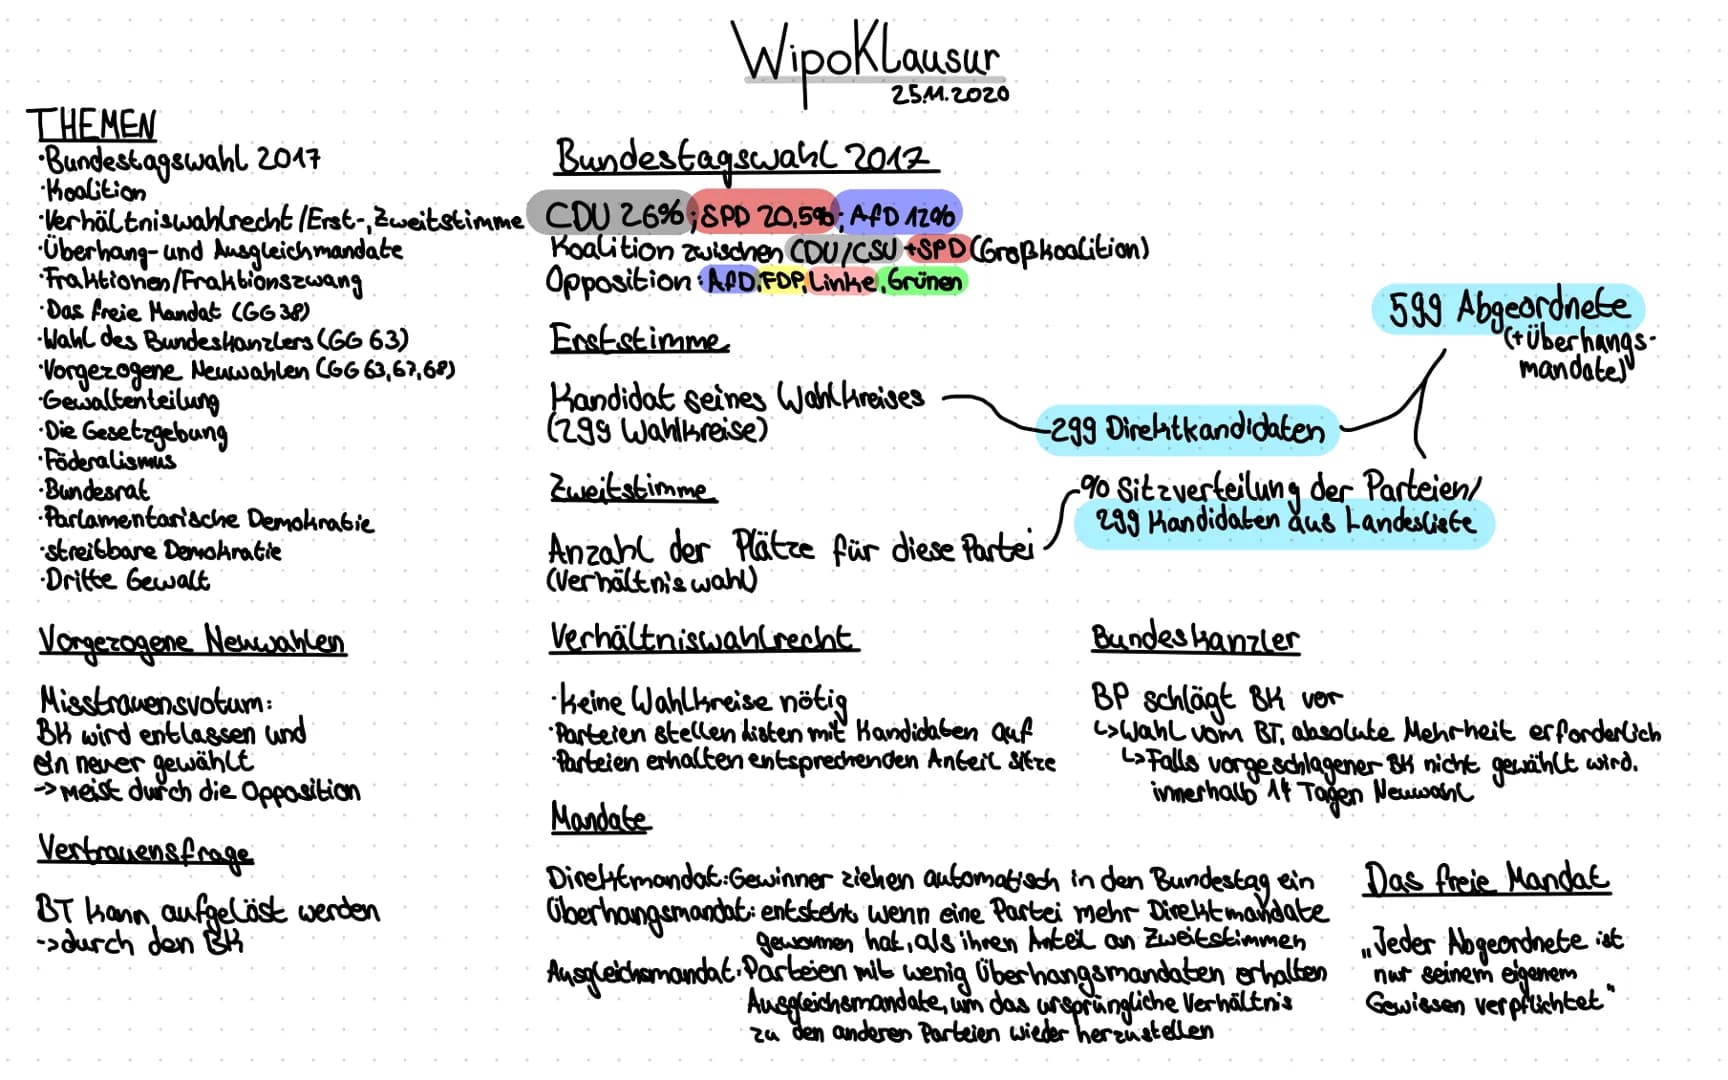 WipoKlausur
25.11.2020
THEMEN
·Bundestagswahl 2017
·Koalition
·Verhältniswahlrecht/Erst-,Zweitstimme
·Überhang- und Ausgleichmandate
·Fraktionen/Fraktionszwang
·Das freie Mandat (GG 38)
·Wahl des Bundeskanzlers (GG 63)
·Vorgezogene Neuwahlen (GG 63,67,68)
·Gewaltenteilung
·Die Gesetzgebung
·Föderalismus
·Bundesrat
·Parlamentarische Demokratie
·streitbare Demokratie
·Dritte Gewalt
Vorgezogene Neuwahlen
Misstrauensvotum:
BK wird entlassen und
ein neuer gewählt
-> meist durch die Opposition
Vertrauensfrage
BT kann aufgelöst werden
->durch den BK
Bundestagswahl 2017
CDU 26%; SPD 20,5%; AfD 12%
Koalition zwischen CDU/CSU + SPD (Großkoalition)
Opposition: AfD, FDP, Linke, Grünen
Erststimme
Kandidat seines Wahlkreises
(299 Wahlkreise)
Zweitstimme
Anzahl der Plätze für diese Partei
(Verhältniswahl)
599 Abgeordnete
(+Überhangs-
mandate)
299 Direktkandidaten
% Sitzverteilung der Parteien/
299 Kandidaten aus Landesliste
Verhältniswahlrecht
·Keine Wahlkreise nötig
·Parteien stellen Listen mit Kandidaten auf
·Parteien erhalten entsprechenden Anteil Sitze
Mandate
Direktmandat: Gewinner ziehen automatisch in den Bundestag ein
Überhangsmandat: entsteht, wenn eine Partei mehr Direktmandate
gewonnen hat, als ihren Anteil an Zweitstimmen
Ausgleichsmandat: Parteien mit wenig Überhangsmandaten erhalten
Ausgleichsmandate, um das ursprüngliche Verhältnis
zu den anderen Parteien wieder herzustellen
Bundeskanzler
BP schlägt BK vor
↳Wahl vom BT, absolute Mehrheit erforderlich
↳Falls vorgeschlagener BK nicht gewählt wird,
innerhalb 14 Tagen Neuwahl
Das freie Mandat
„Jeder Abgeordnete ist
nur seinem eigenem
Gewissen verpflichtet"